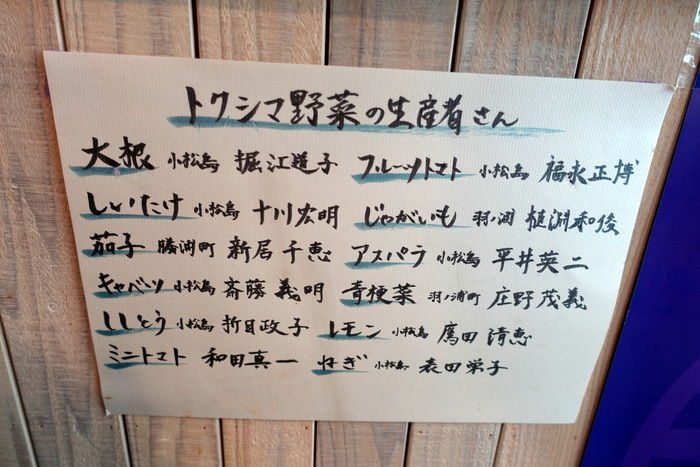 トクシマ野菜の生産者さん
大根 小松島 堀江道子 フルーツトマト 小松島 福永正博
しいたけ 小松島 十川宏明 じゃがいも 羽ノ浦 植渕和俊
茄子 勝浦町 新居千恵 アスパラ 小松島 平井英二
キャベツ 小松島 斎藤義明 青梗菜 羽ノ浦町 庄野茂義
ししとう 小松島 折目政子 レモン 小松島 鷹田清恵
ミニトマト 和田真一 ねぎ 小松島 表田栄子